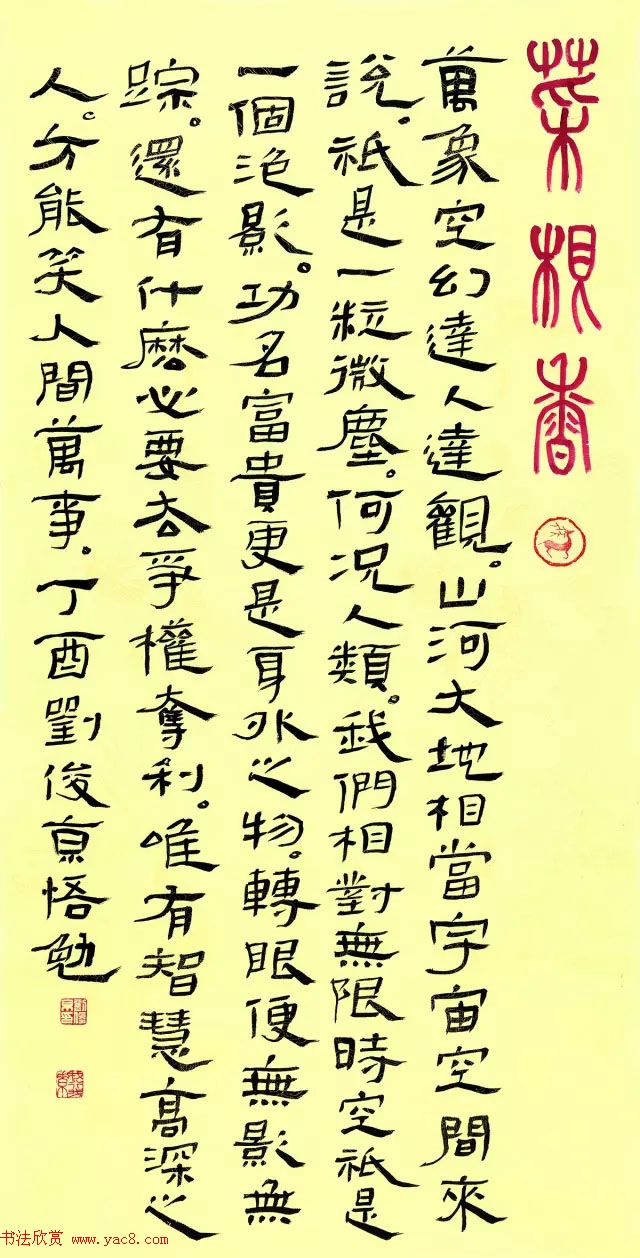 菜根香
萬象空幻達人達觀。山河大地相當宇宙空間來
說。祇是一粒微塵。何況人類。我們相對無限時空祇是
一個泡影。功名富貴更是身外之物。轉眼便無影無
踪。還有什麼必要去爭權奪利。唯有智慧高深之
人。方能笑人間萬事。丁酉劉俊京悟勉
书法欣赏 www.yac8.com